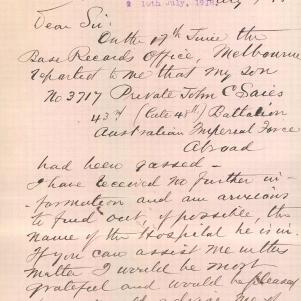 2 19th July, 1918.
Dear Sir:
On the 17th June the
Base Records Office, Melbourne
reported to me that my son
No 3717 Private John C Saies
43rd (late 48th) Battalion
Australian Imperial Force
Abroad
had been gassed -
I have received no further in-
-formation and am anxious
to find out, if possible, the
name of the Hospital he is in.
If you can assist me in this
matter I would be most
grateful and would be pleased